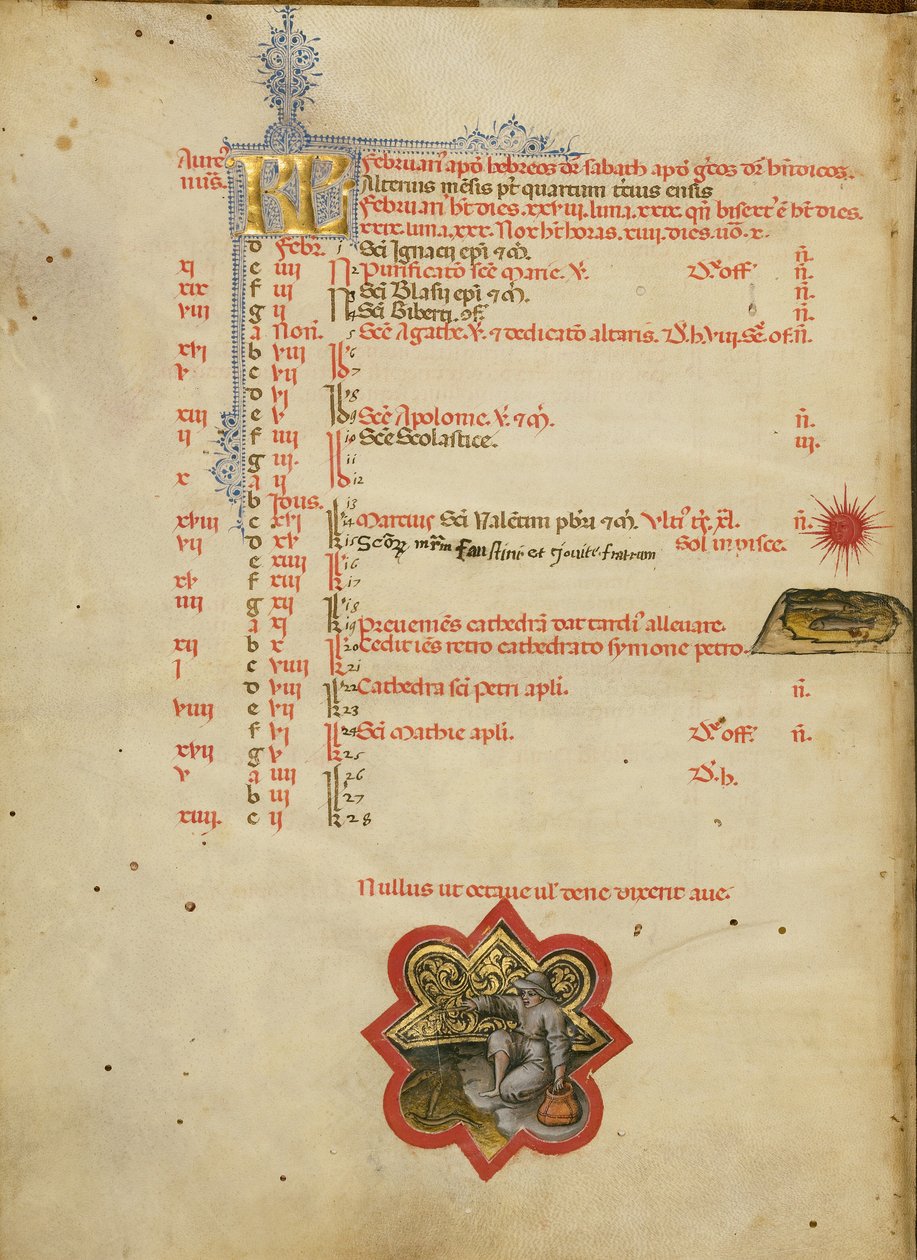 Aure9
nu9s.
KL
Februari9 apd hebreos dr sabath apd grecos dr hntoicos.
Alterius mesis pt quartum tcius ensis
Februari9 ht dies .xxviii. luna .xxix. qn bisext9 e ht dies.
xxix. luna .xxx. Nox ht horas .xiiii. dies. uo .x.
d Febr. 1 Sci Ignacii epi 7 m. n.
xi e iiii N 2 Purificato sce Marie. v. Dx off. n.
xix f iii 3 Sci Blasii epi 7 m. n.
viii g ii N 4 Sci Giberti. 9f. n.
a Non. 5 Sce Agathe. v. 7 dedicato altaris. D. h. viii. Sce. of. n.
xvi b viii I 6
v c vii d 7
d vi I 8
xiii e v d 9 Sce Apolonie. v. 7 m. n.
ii f iiii I 10 Sce Scolastice. iii.
g iii. 11
x a ii d 12
b Idus. 13
xviii c xvi 14 Marcius Sci Valetini pbri 7 m. n.
vii d xv k 15 faustini et Jouite fratrum Sol in pisce.
e xiiii 16
xv f xiii k 17
iiii g xii 18
a xi k 19 Preueniens cathedra dat tardi9 alleuare.
xii b x 20 Cedit ies retro cathedrato symone petro.
i c viiii k 21
d viii 22 Cathedra sci Petri apli. n.
viiii e vii k 23
f vi 24 Sci Mathie apli. Dx off. n.
xvii g v k 25
v a iiii 26 D. h.
b iii 27
xiiii. c ii k 28
Nullus ut octaue ul dene dixerit aue.